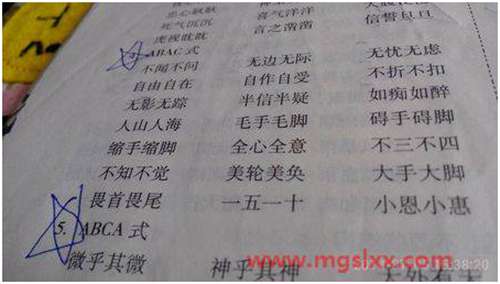 死气沉沉 喜气洋洋
虎视眈眈 言之凿凿 信誓旦旦
ABAC 式
不闻不问 无边无际 无忧无虑
自由自在 自作自受 不折不扣
无影无踪 半信半疑 如痴如醉
人山人海 毛手毛脚 碍手碍脚
缩手缩脚 全心全意 不三不四
不知不觉 美轮美奂 大手大脚
畏首畏尾 一五一十 小恩小惠
5. ABCA 式
微乎其微 神乎其神 天外有天
www.mgslxx.com